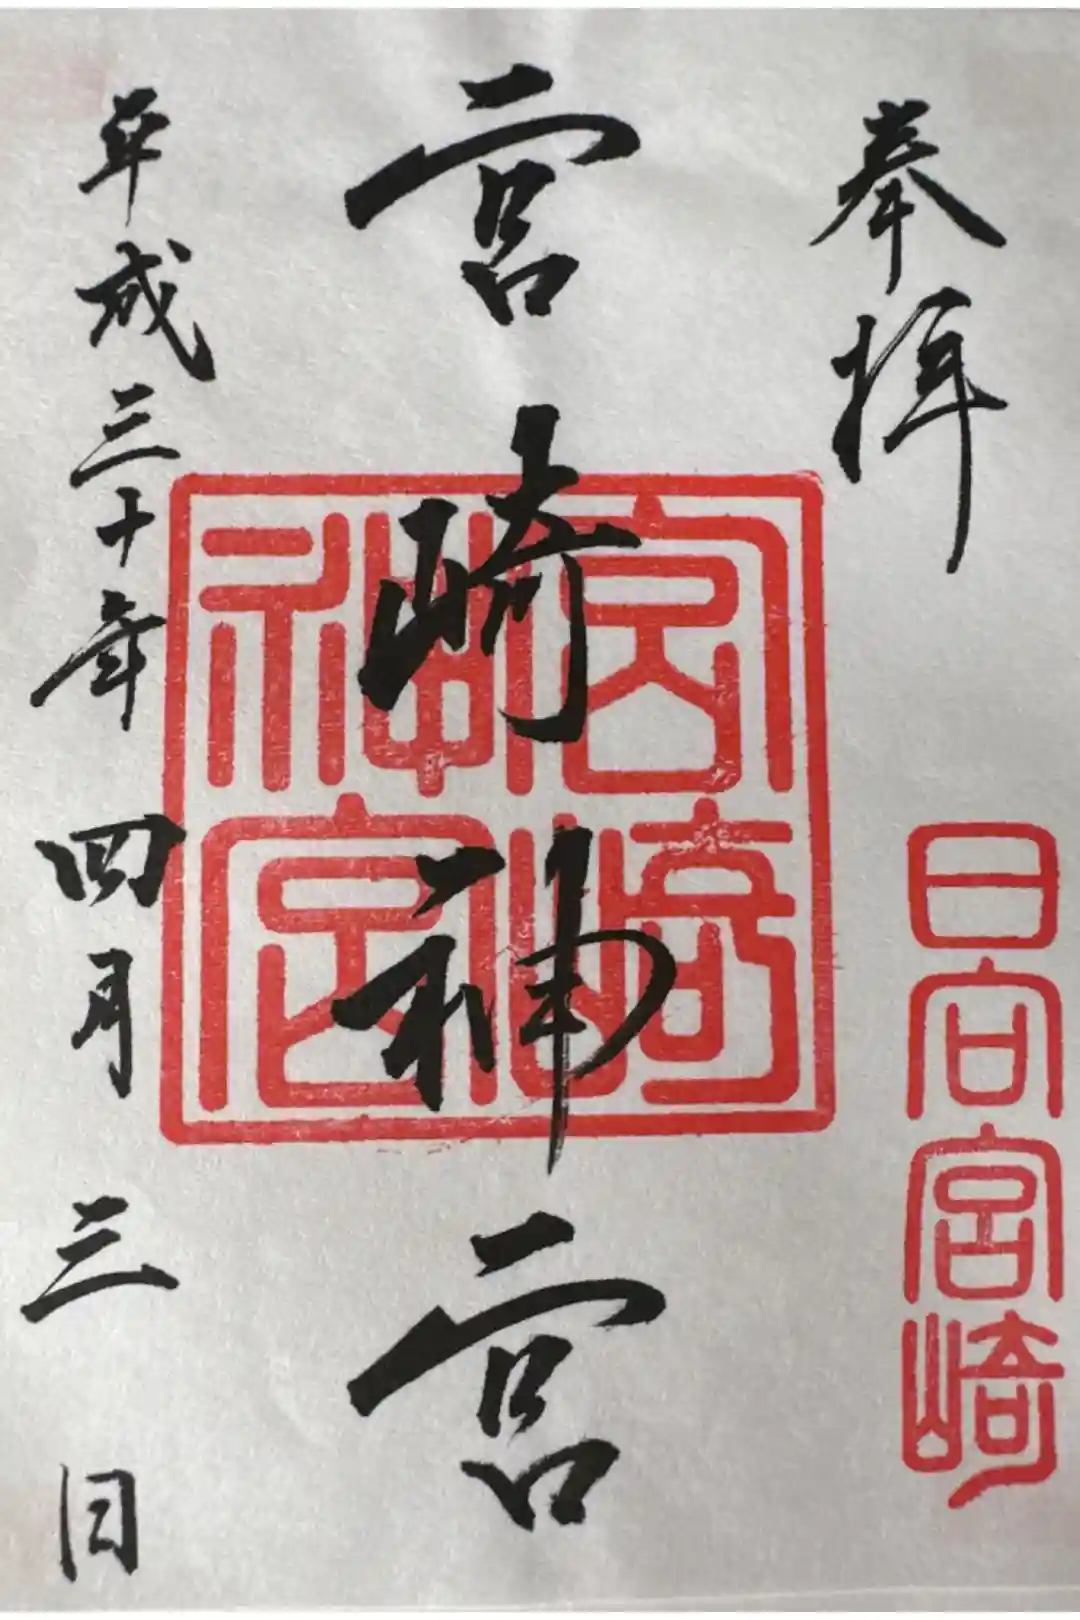 奉拝
日向宮崎
宮崎神宮
宮崎神宮
平成三十年四月三日